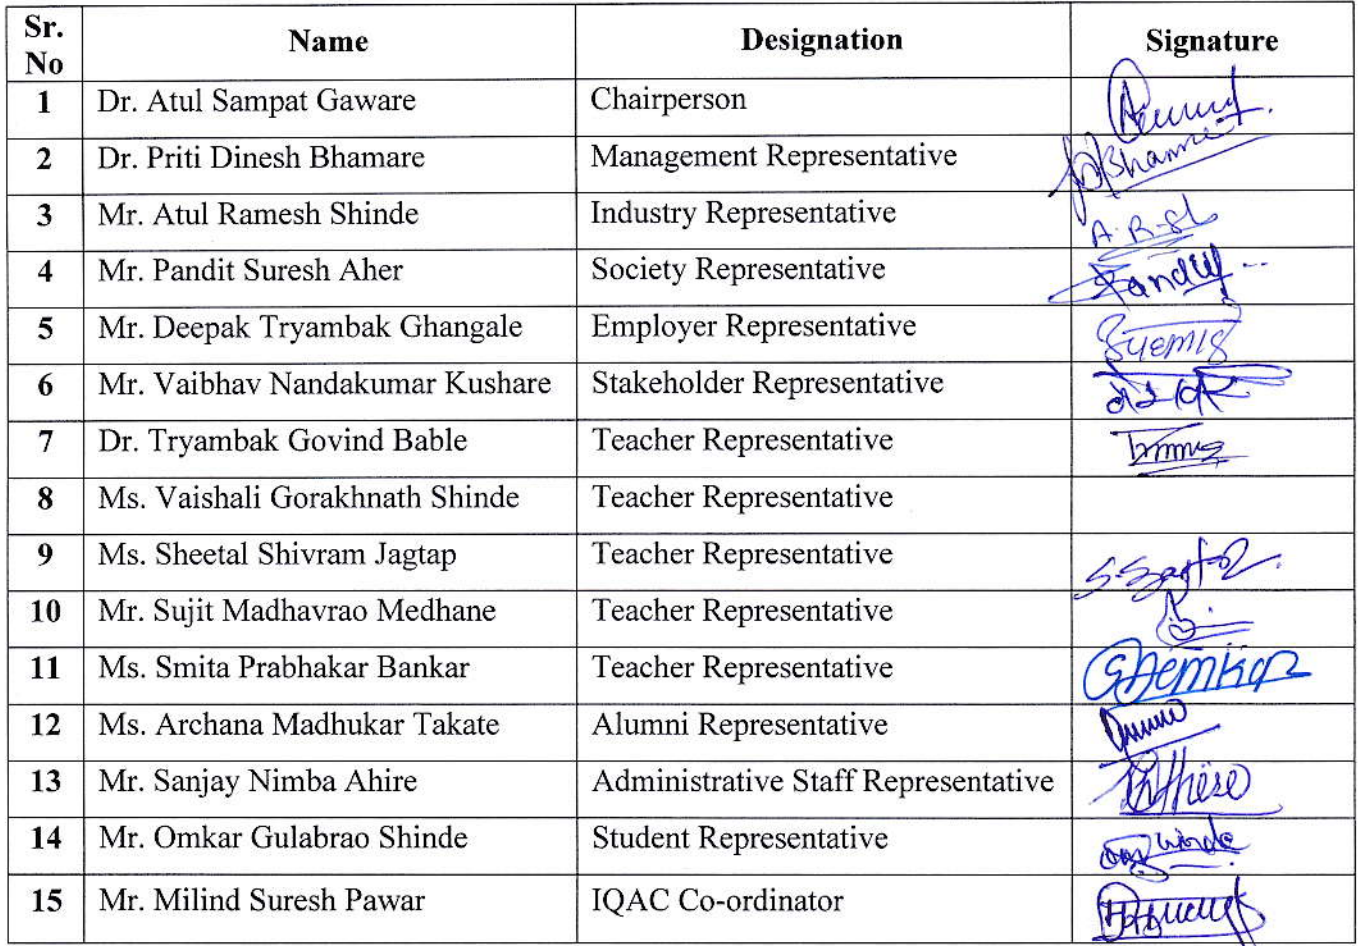 Sr. No Name Designation Signature
1 Dr. Atul Sampat Gaware Chairperson
2 Dr. Priti Dinesh Bhamare Management Representative
3 Mr. Atul Ramesh Shinde Industry Representative
4 Mr. Pandit Suresh Aher Society Representative
5 Mr. Deepak Tryambak Ghangale Employer Representative
6 Mr. Vaibhav Nandakumar Kushare Stakeholder Representative
7 Dr. Tryambak Govind Bable Teacher Representative
8 Ms. Vaishali Gorakhnath Shinde Teacher Representative
9 Ms. Sheetal Shivram Jagtap Teacher Representative
10 Mr. Sujit Madhavrao Medhane Teacher Representative
11 Ms. Smita Prabhakar Bankar Teacher Representative
12 Ms. Archana Madhukar Takate Alumni Representative
13 Mr. Sanjay Nimba Ahire Administrative Staff Representative
14 Mr. Omkar Gulabrao Shinde Student Representative
15 Mr. Milind Suresh Pawar IQAC Co-ordinator